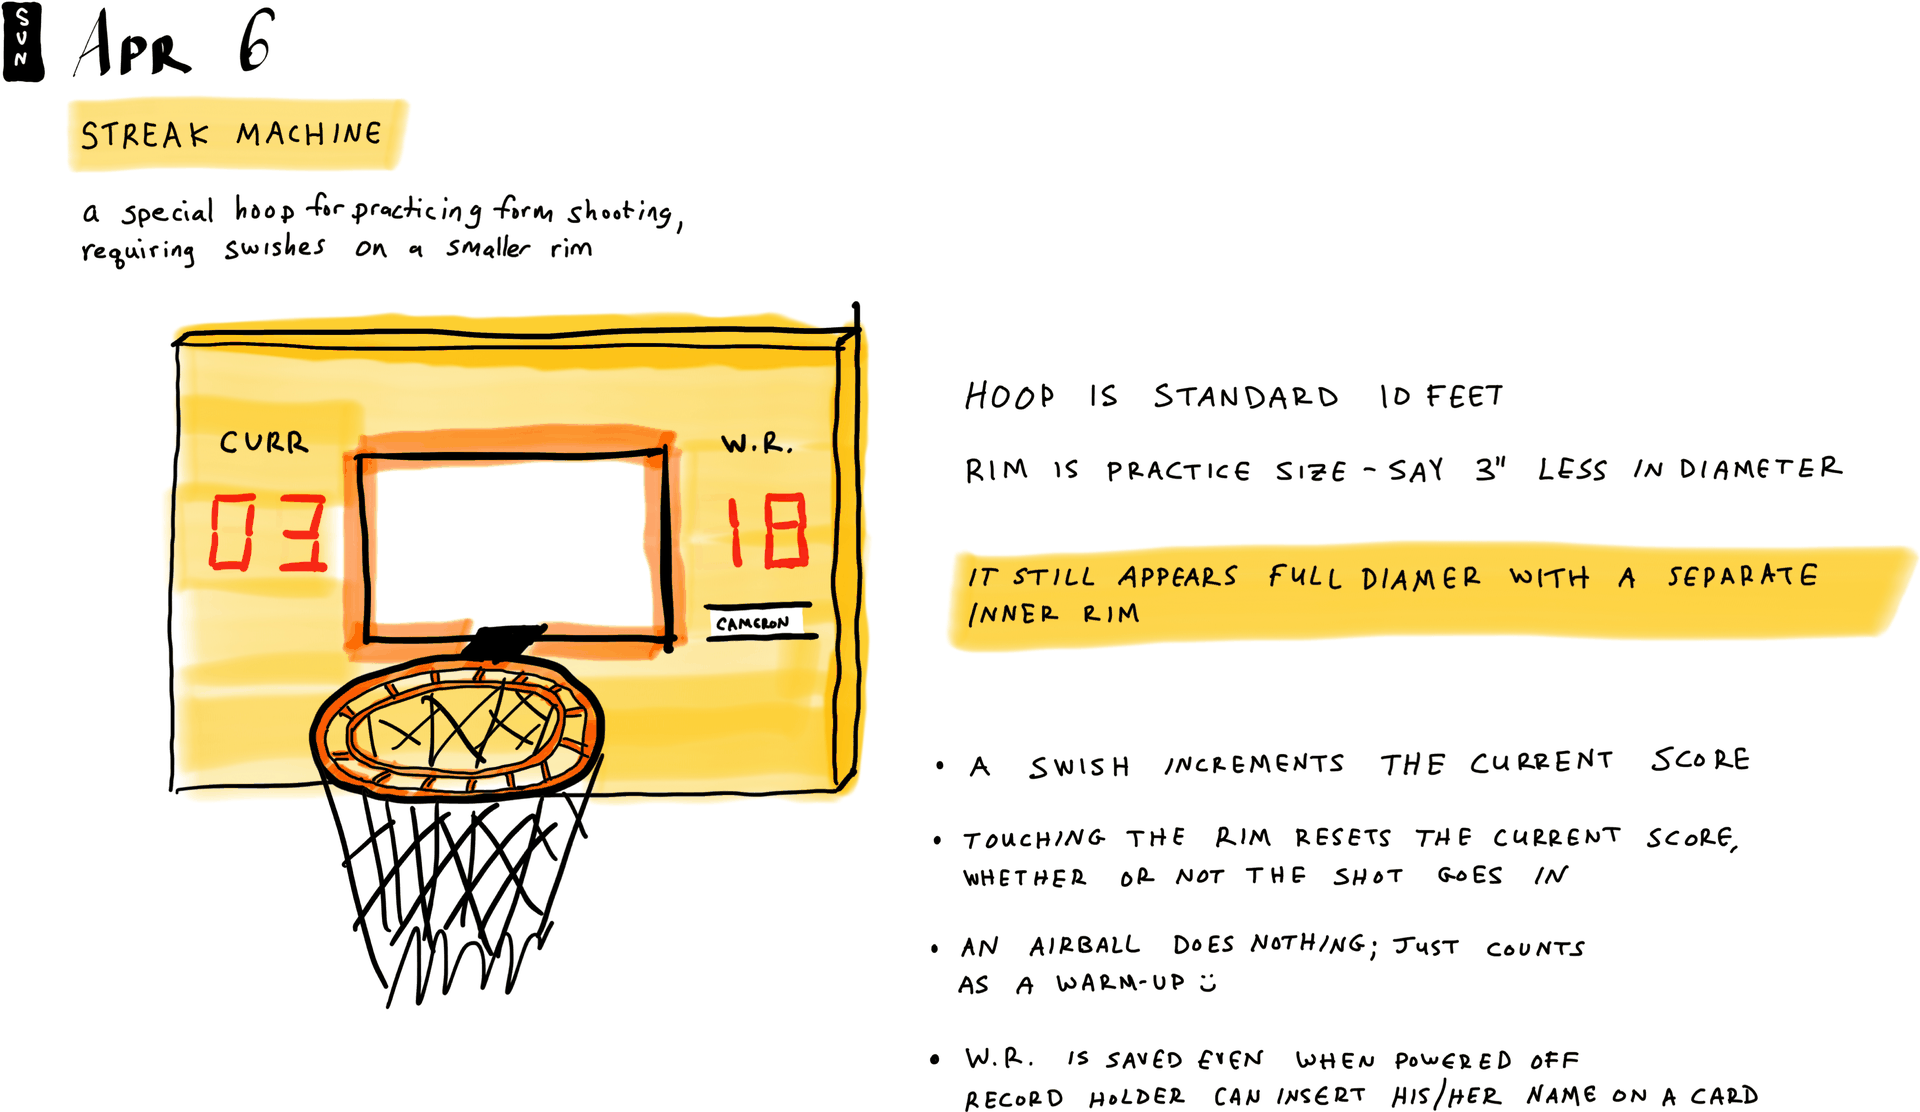 SUN
APR 6
STREAK MACHINE
a special hoop for practicing form shooting,
requiring swishes on a smaller rim
CURR
W.R.
03
18
CAMERON
HOOP IS STANDARD 10 FEET
RIM IS PRACTICE SIZE - SAY 3" LESS IN DIAMETER
IT STILL APPEARS FULL DIAMER WITH A SEPARATE
INNER RIM
• A SWISH INCREMENTS THE CURRENT SCORE
• TOUCHING THE RIM RESETS THE CURRENT SCORE,
WHETHER OR NOT THE SHOT GOES IN
• AN AIRBALL DOES NOTHING; JUST COUNTS
AS A WARM-UP :)
• W.R. IS SAVED EVEN WHEN POWERED OFF
RECORD HOLDER CAN INSERT HIS/HER NAME ON A CARD